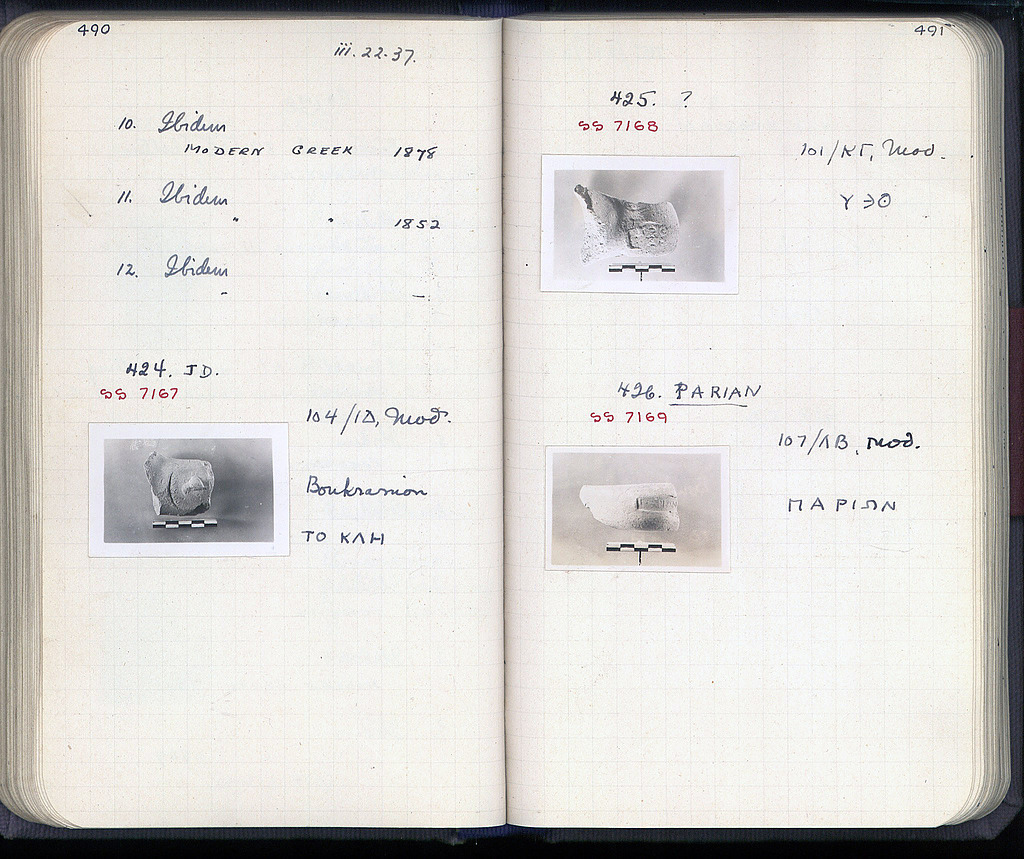 490
iii. 22. 37.
10. Ibidem
MODERN GREEK 1878
11. Ibidem
" " 1852
12. Ibidem
" " —
424. JD.
SS 7167
104/ΙΔ, Mod.
Boukranion
ΤΟ ΚΛΗ
491
425. ?
SS 7168
101/ΚΓ, Mod.
Υ ЭΘ
426. PARIAN
SS 7169
107/ΛΒ, Mod.
ΠΑΡΙΩΝ